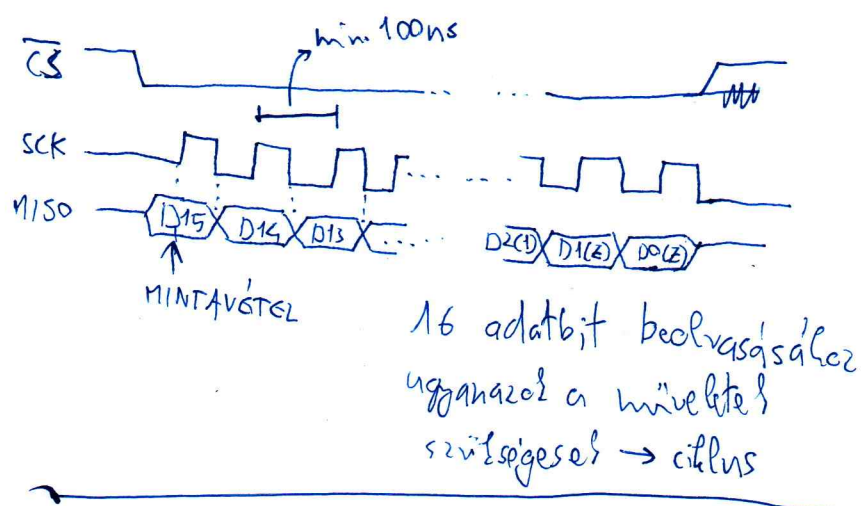 min. 100ns
CS
SCK
MISO
D15 D14 D13 ..... D2(1) D1(Z) D0(Z)
MINTAVÉTEL
16 adatbit beolvasásához
ugyanazok a műveletek
szükségesek → ciklus